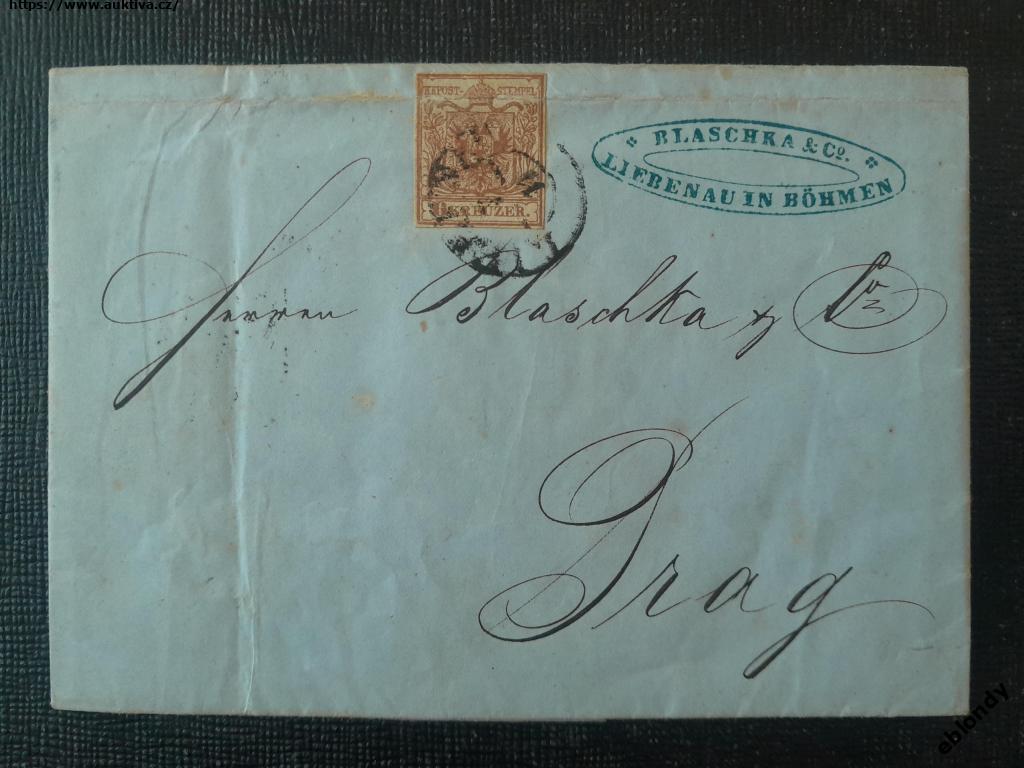 https://www.auktiva.cz/
KKPOST-STEMPEL
KREUZER.
BLASCHKA & Co.
LIEBENAU IN BÖHMEN
Herren Blaschka & Co
Prag
eblondy